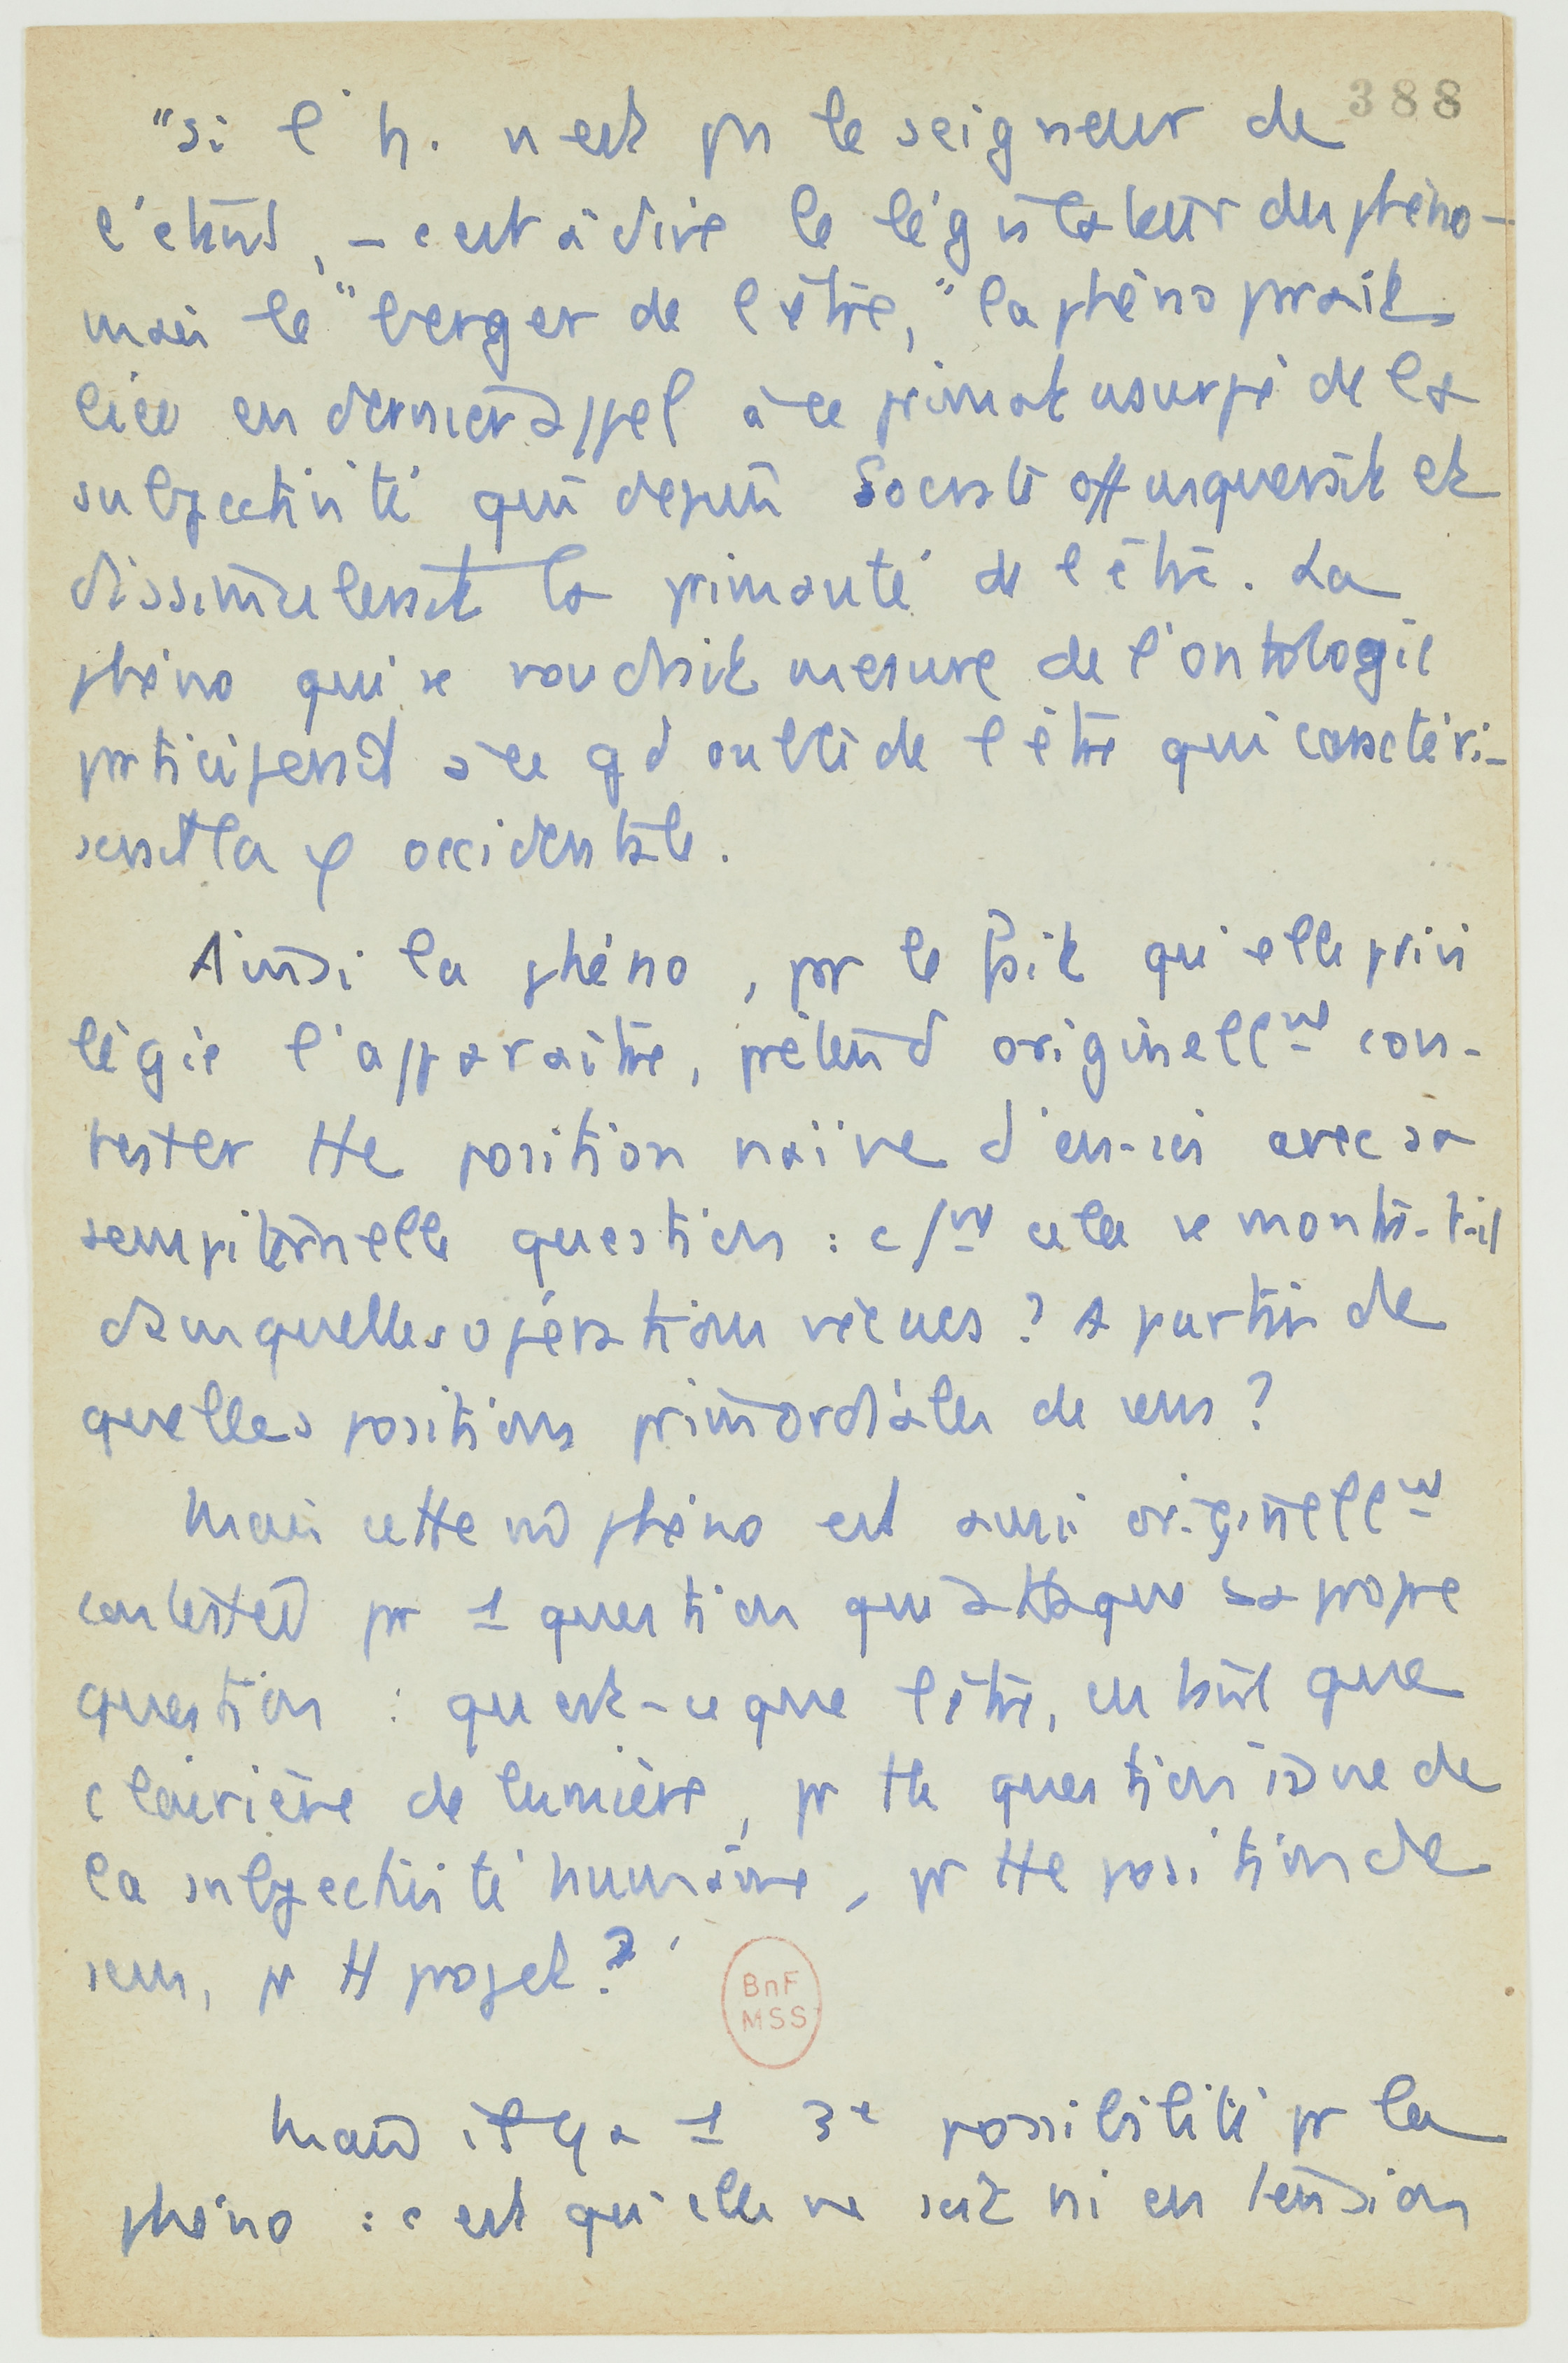 388
"si l'h. n'est pas le seigneur de
l'étant, – c'est à dire le législateur du phéno –
mais le "berger de l'être," la phéno serait
liée en dernier appel à ce primat usurpé de la
subjectivité qui depuis Socrate offusquerait et
dissimulerait la primauté de l'être. La
phéno qui se voudrait mesure de l'ontologie
participerait à ce gd oubli de l'être qui caractéri-
serait la φ occidentale.
Ainsi la phéno, par le fait qu'elle privi
légie l'apparaître, prétend originellmt con-
tester tte position naïve d'en-soi avec sa
sempiternelle question : c/mt cela se montre-t-il
dans quelles opérations vécues? A partir de
quelles positions primordiales de sens?
Mais cette phéno est aussi originellmt
contestée par 1 question qui attaque sa propre
question : qu'est-ce que l'être, en tant que
clairière de lumière, pr tte question issue de
la subjectivité humaine, pr tte position de
sens, pr tt projet?"
BnF
MSS
Mais il y a 1 3e possibilité pr la
phéno : c'est qu'elle ne soit ni en tension